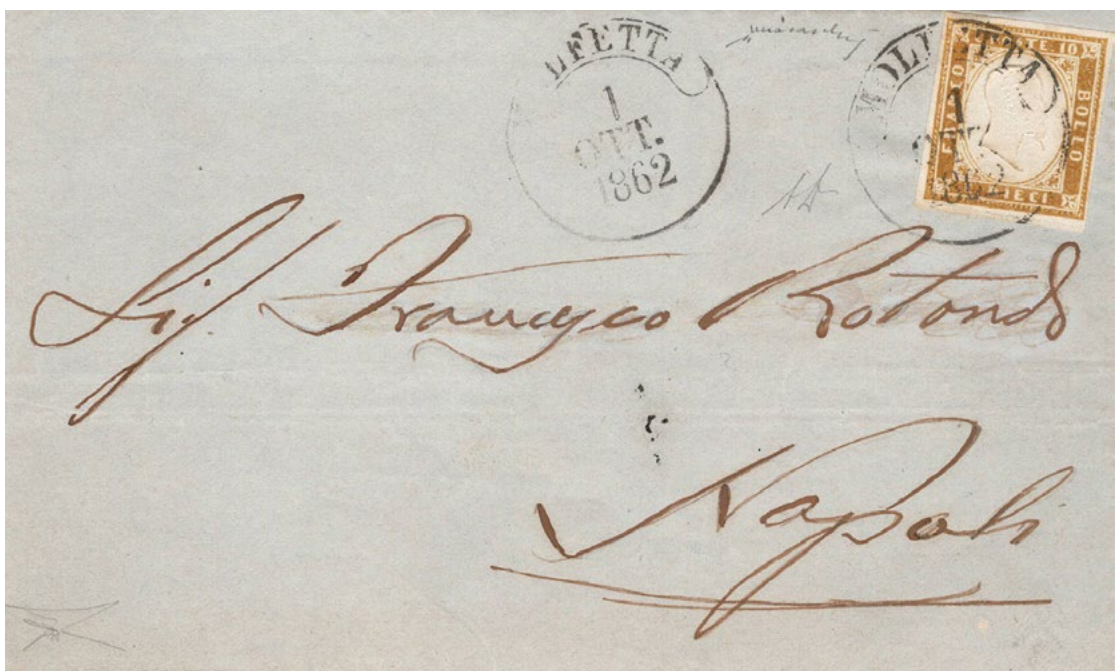 MOLFETTA
1
OTT.
1862
MOLFETTA
1
OTT.
1862
FRANCO
BOLLO
10
DIECI
Sig Francesco Rotondo
Napoli